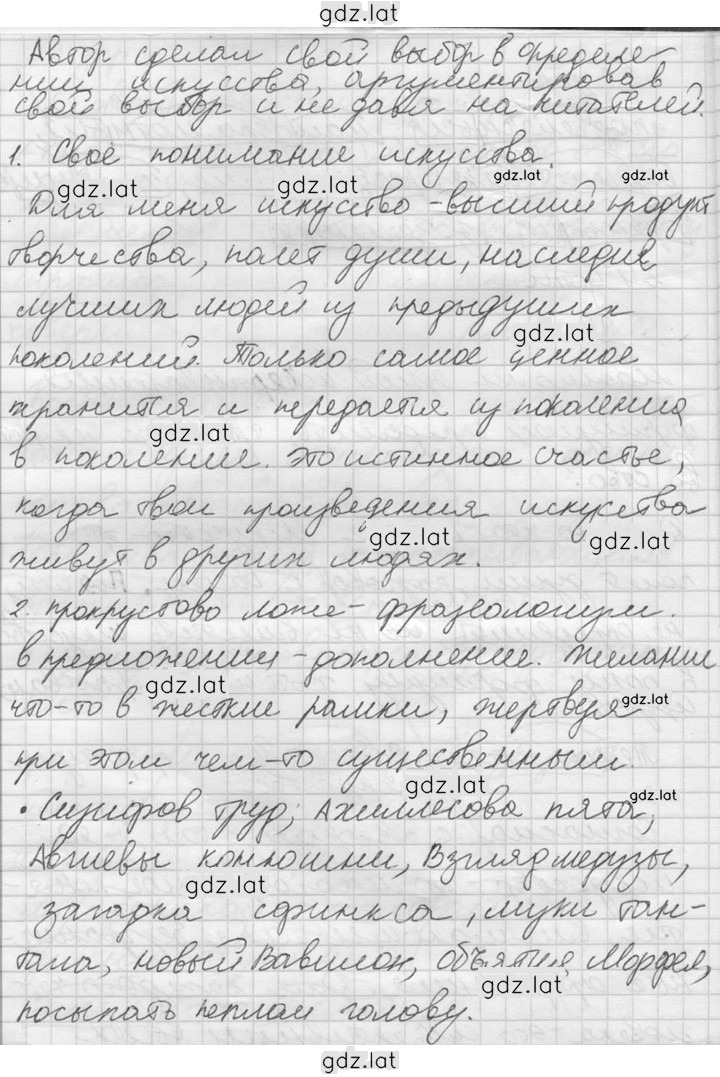 gdz.lat
Автор сделал свой выбор в определе-
нии искусства, аргументировав
свой выбор и не давя на читателей.
1. Своё понимание искусства.
gdz.lat gdz.lat gdz.lat gdz.lat
Для меня искусство - высший продукт
творчества, полет души, наследие
лучших людей из предыдущих
gdz.lat
поколений. Только самое ценное
хранится и передается из поколения
gdz.lat
в поколение. это истинное счастье,
когда твои произведения искусства
gdz.lat gdz.lat
живут в других людях.
2. прокрустово ложе - фразеологизм.
в предложении - дополнение. Желание
gdz.lat gdz.lat
что-то в жесткие рамки, жертвуя
при этом чем-то существенным.
gdz.lat gdz.lat
• Сизифов труд, Ахиллесова пята,
Авгиевы конюшни, Взгляд медузы,
gdz.lat
загадка сфинкса, муки тан-
тала, новый Вавилон, объятия Морфея,
gdz.lat
посыпать пеплом голову.
gdz.lat